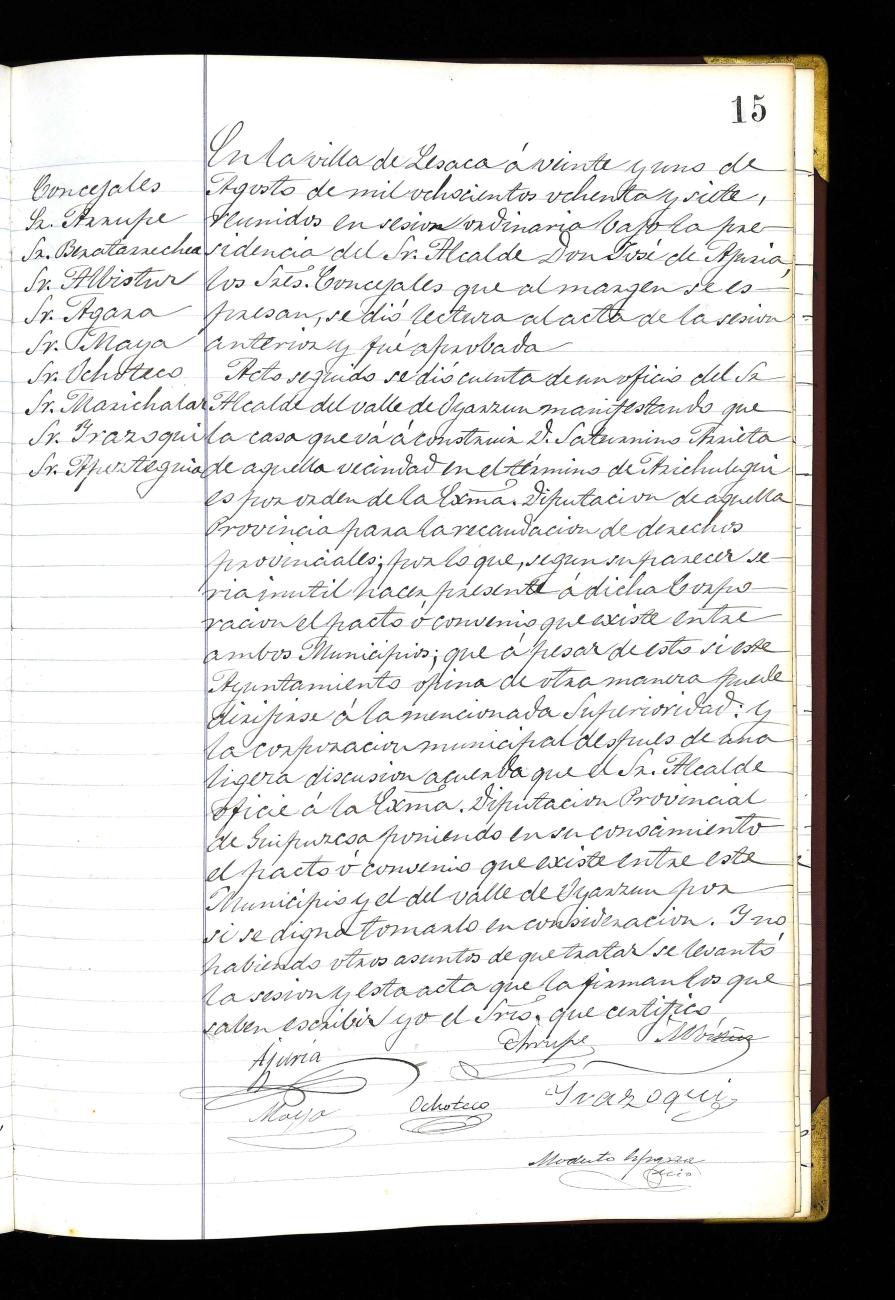 15
Concejales
Sr. Arrupe
Sr. Beratarrechea
Sr. Albistur
Sr. Agara
Sr. Maya
Sr. Ochoteco
Sr. Marichalar
Sr. Irazoqui
Sr. Apezteguia
En la villa de Lesaca á veinte y uno de
Agosto de mil ochocientos ochenta y siete,
reunidos en sesion ordinaria bajo la pre-
sidencia del Sr. Alcalde Don José de Ajuria,
los Sres. Concejales que al margen se es-
presan, se dió lectura al acta de la sesion
anterior y fué aprobada
Acto seguido se dió cuenta de un oficio del Sr
Alcalde del valle de Oyarzun manifestando que
la casa que vá á construir D. Saturnino Arrieta
de aquella vecindad en el término de Arichulegui
es por orden de la Exma. Diputacion de aquella
Provincia para la recaudacion de derechos
provinciales; por lo que, segun su parecer se-
ria inutil hacer presente á dicha Corpo-
racion el pacto ó convenio que existe entre
ambos Municipios; que á pesar de esto si este
Ayuntamiento opina de otra manera puede
dirijirse á la mencionada Superioridad: y
la corporacion municipal despues de una
ligera discusion acuerda que el Sr. Alcalde
oficie a la Exma. Diputacion Provincial
de Guipuzcoa poniendo en su conocimiento
el pacto ó convenio que existe entre este
Municipio y el del valle de Oyarzun por
si se digna tomarlo en consideracion. Y no
habiendo otros asuntos de que tratar se levantó
la sesion y esta acta que la firman los que
saben escribir yo el Srio. que certifico
Ajuria Arrupe Albistur
Maya Ochoteco Irazoqui
Modesto
Srio